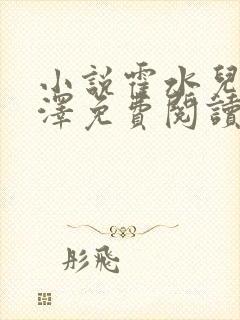 小說霍水兒
澤免費閱讀
彤飛